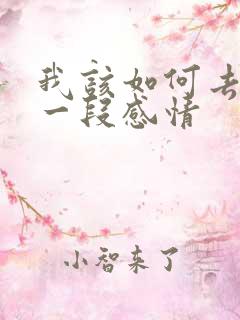 我该如何去
一段感情
小智来了